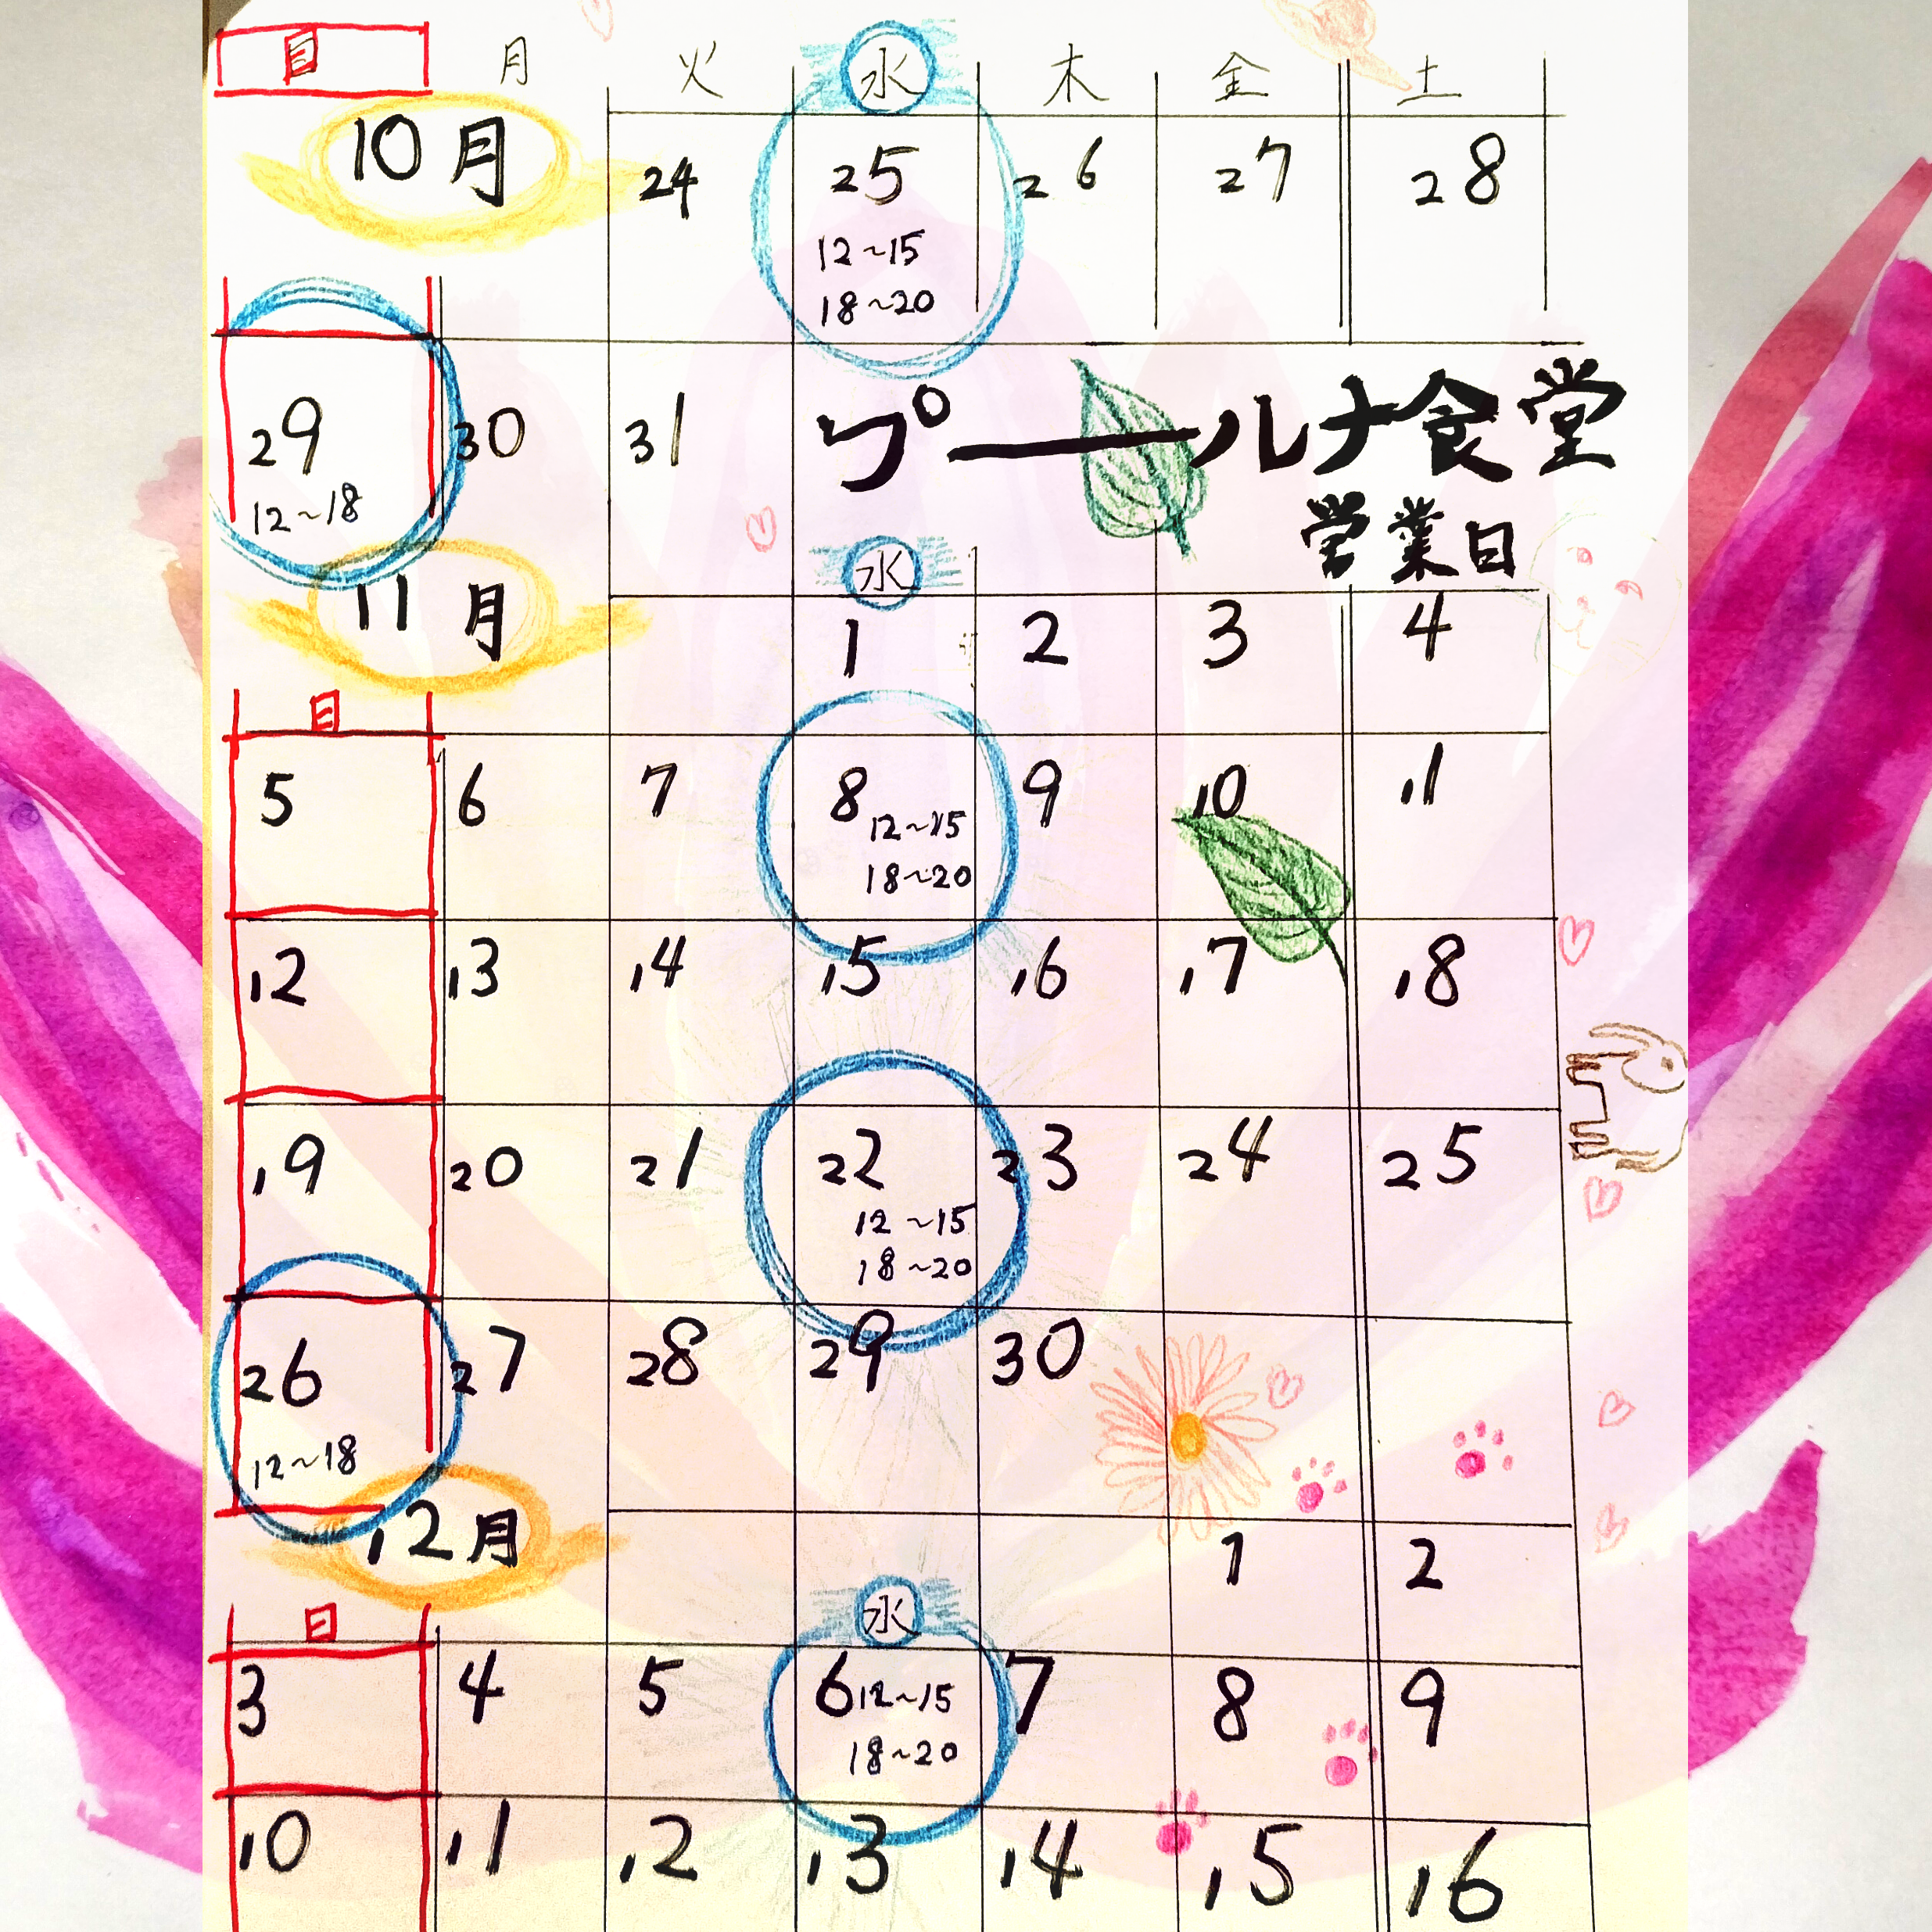 日 月 火 水 木 金 土
10月 24 25 26 27 28
12~15
18~20
29 30 31 プールナ食堂
12~18
営業日
水
11月 1 2 3 4
日
5 6 7 8 9 10 11
12~15
18~20
12 13 14 15 16 17 18
19 20 21 22 23 24 25
12~15
18~20
26 27 28 29 30
12~18
12月 1 2
日 水
3 4 5 6 12~15 7 8 9
18~20
10 11 12 13 14 15 16